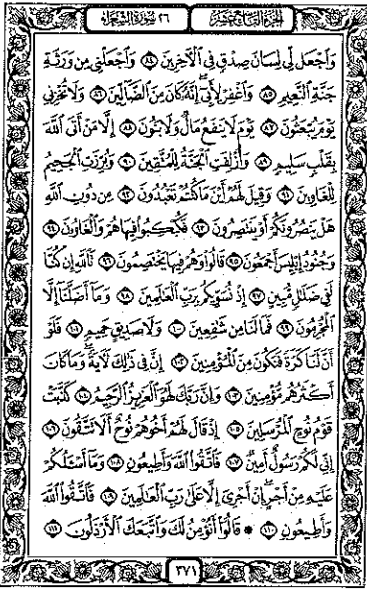 الجزء التاسع عشر ٢٦ سورة الشعراء
وَٱجْعَل لِّى لِسَانَ صِدْقٍ فِى ٱلْأَخِرِينَ ٨٤ وَٱجْعَلْنِى مِن وَرَثَةِ
جَنَّةِ ٱلنَّعِيمِ ٨٥ وَٱغْفِرْ لِأَبِىٓ إِنَّهُۥ كَانَ مِنَ ٱلضَّآلِّينَ ٨٦ وَلَا تُخْزِنِى
يَوْمَ يُبْعَثُونَ ٨٧ يَوْمَ لَا يَنفَعُ مَالٌ وَلَا بَنُونَ ٨٨ إِلَّا مَنْ أَتَى ٱللَّهَ
بِقَلْبٍ سَلِيمٍ ٨٩ وَأُزْلِفَتِ ٱلْجَنَّةُ لِلْمُتَّقِينَ ٩٠ وَبُرِّزَتِ ٱلْجَحِيمُ
لِلْغَاوِينَ ٩١ وَقِيلَ لَهُمْ أَيْنَ مَا كُنتُمْ تَعْبُدُونَ ٩٢ مِن دُونِ ٱللَّهِ
هَلْ يَنصُرُونَكُمْ أَوْ يَنتَصِرُونَ ٩٣ فَكُبْكِبُوا۟ فِيهَا هُمْ وَٱلْغَاوُۥنَ ٩٤
وَجُنُودُ إِبْلِيسَ أَجْمَعُونَ ٩٥ قَالُوا۟ وَهُمْ فِيهَا يَخْتَصِمُونَ ٩٦ تَٱللَّهِ إِن كُنَّا
لَفِى ضَلَٰلٍ مُّبِينٍ ٩٧ إِذْ نُسَوِّيكُم بِرَبِّ ٱلْعَٰلَمِينَ ٩٨ وَمَآ أَضَلَّنَآ إِلَّا
ٱلْمُجْرِمُونَ ٩٩ فَمَا لَنَا مِن شَٰفِعِينَ ١٠٠ وَلَا صَدِيقٍ حَمِيمٍ ١٠١ فَلَوْ
أَنَّ لَنَا كَرَّةً فَنَكُونَ مِنَ ٱلْمُؤْمِنِينَ ١٠٢ إِنَّ فِى ذَٰلِكَ لَأٓيَةً وَمَا كَانَ
أَكْثَرُهُم مُّؤْمِنِينَ ١٠٣ وَإِنَّ رَبَّكَ لَهُوَ ٱلْعَزِيزُ ٱلرَّحِيمُ ١٠٤ كَذَّبَتْ
قَوْمُ نُوحٍ ٱلْمُرْسَلِينَ ١٠٥ إِذْ قَالَ لَهُمْ أَخُوهُمْ نُوحٌ أَلَا تَتَّقُونَ ١٠٦
إِنِّى لَكُمْ رَسُولٌ أَمِينٌ ١٠٧ فَٱتَّقُوا۟ ٱللَّهَ وَأَطِيعُونِ ١٠٨ وَمَآ أَسْـَٔلُكُمْ
عَلَيْهِ مِنْ أَجْرٍ إِنْ أَجْرِىَ إِلَّا عَلَىٰ رَبِّ ٱلْعَٰلَمِينَ ١٠٩ فَٱتَّقُوا۟ ٱللَّهَ
وَأَطِيعُونِ ١١٠ ۞ قَالُوٓا۟ أَنُؤْمِنُ لَكَ وَٱتَّبَعَكَ ٱلْأَرْذَلُونَ ١١١
٣٧١